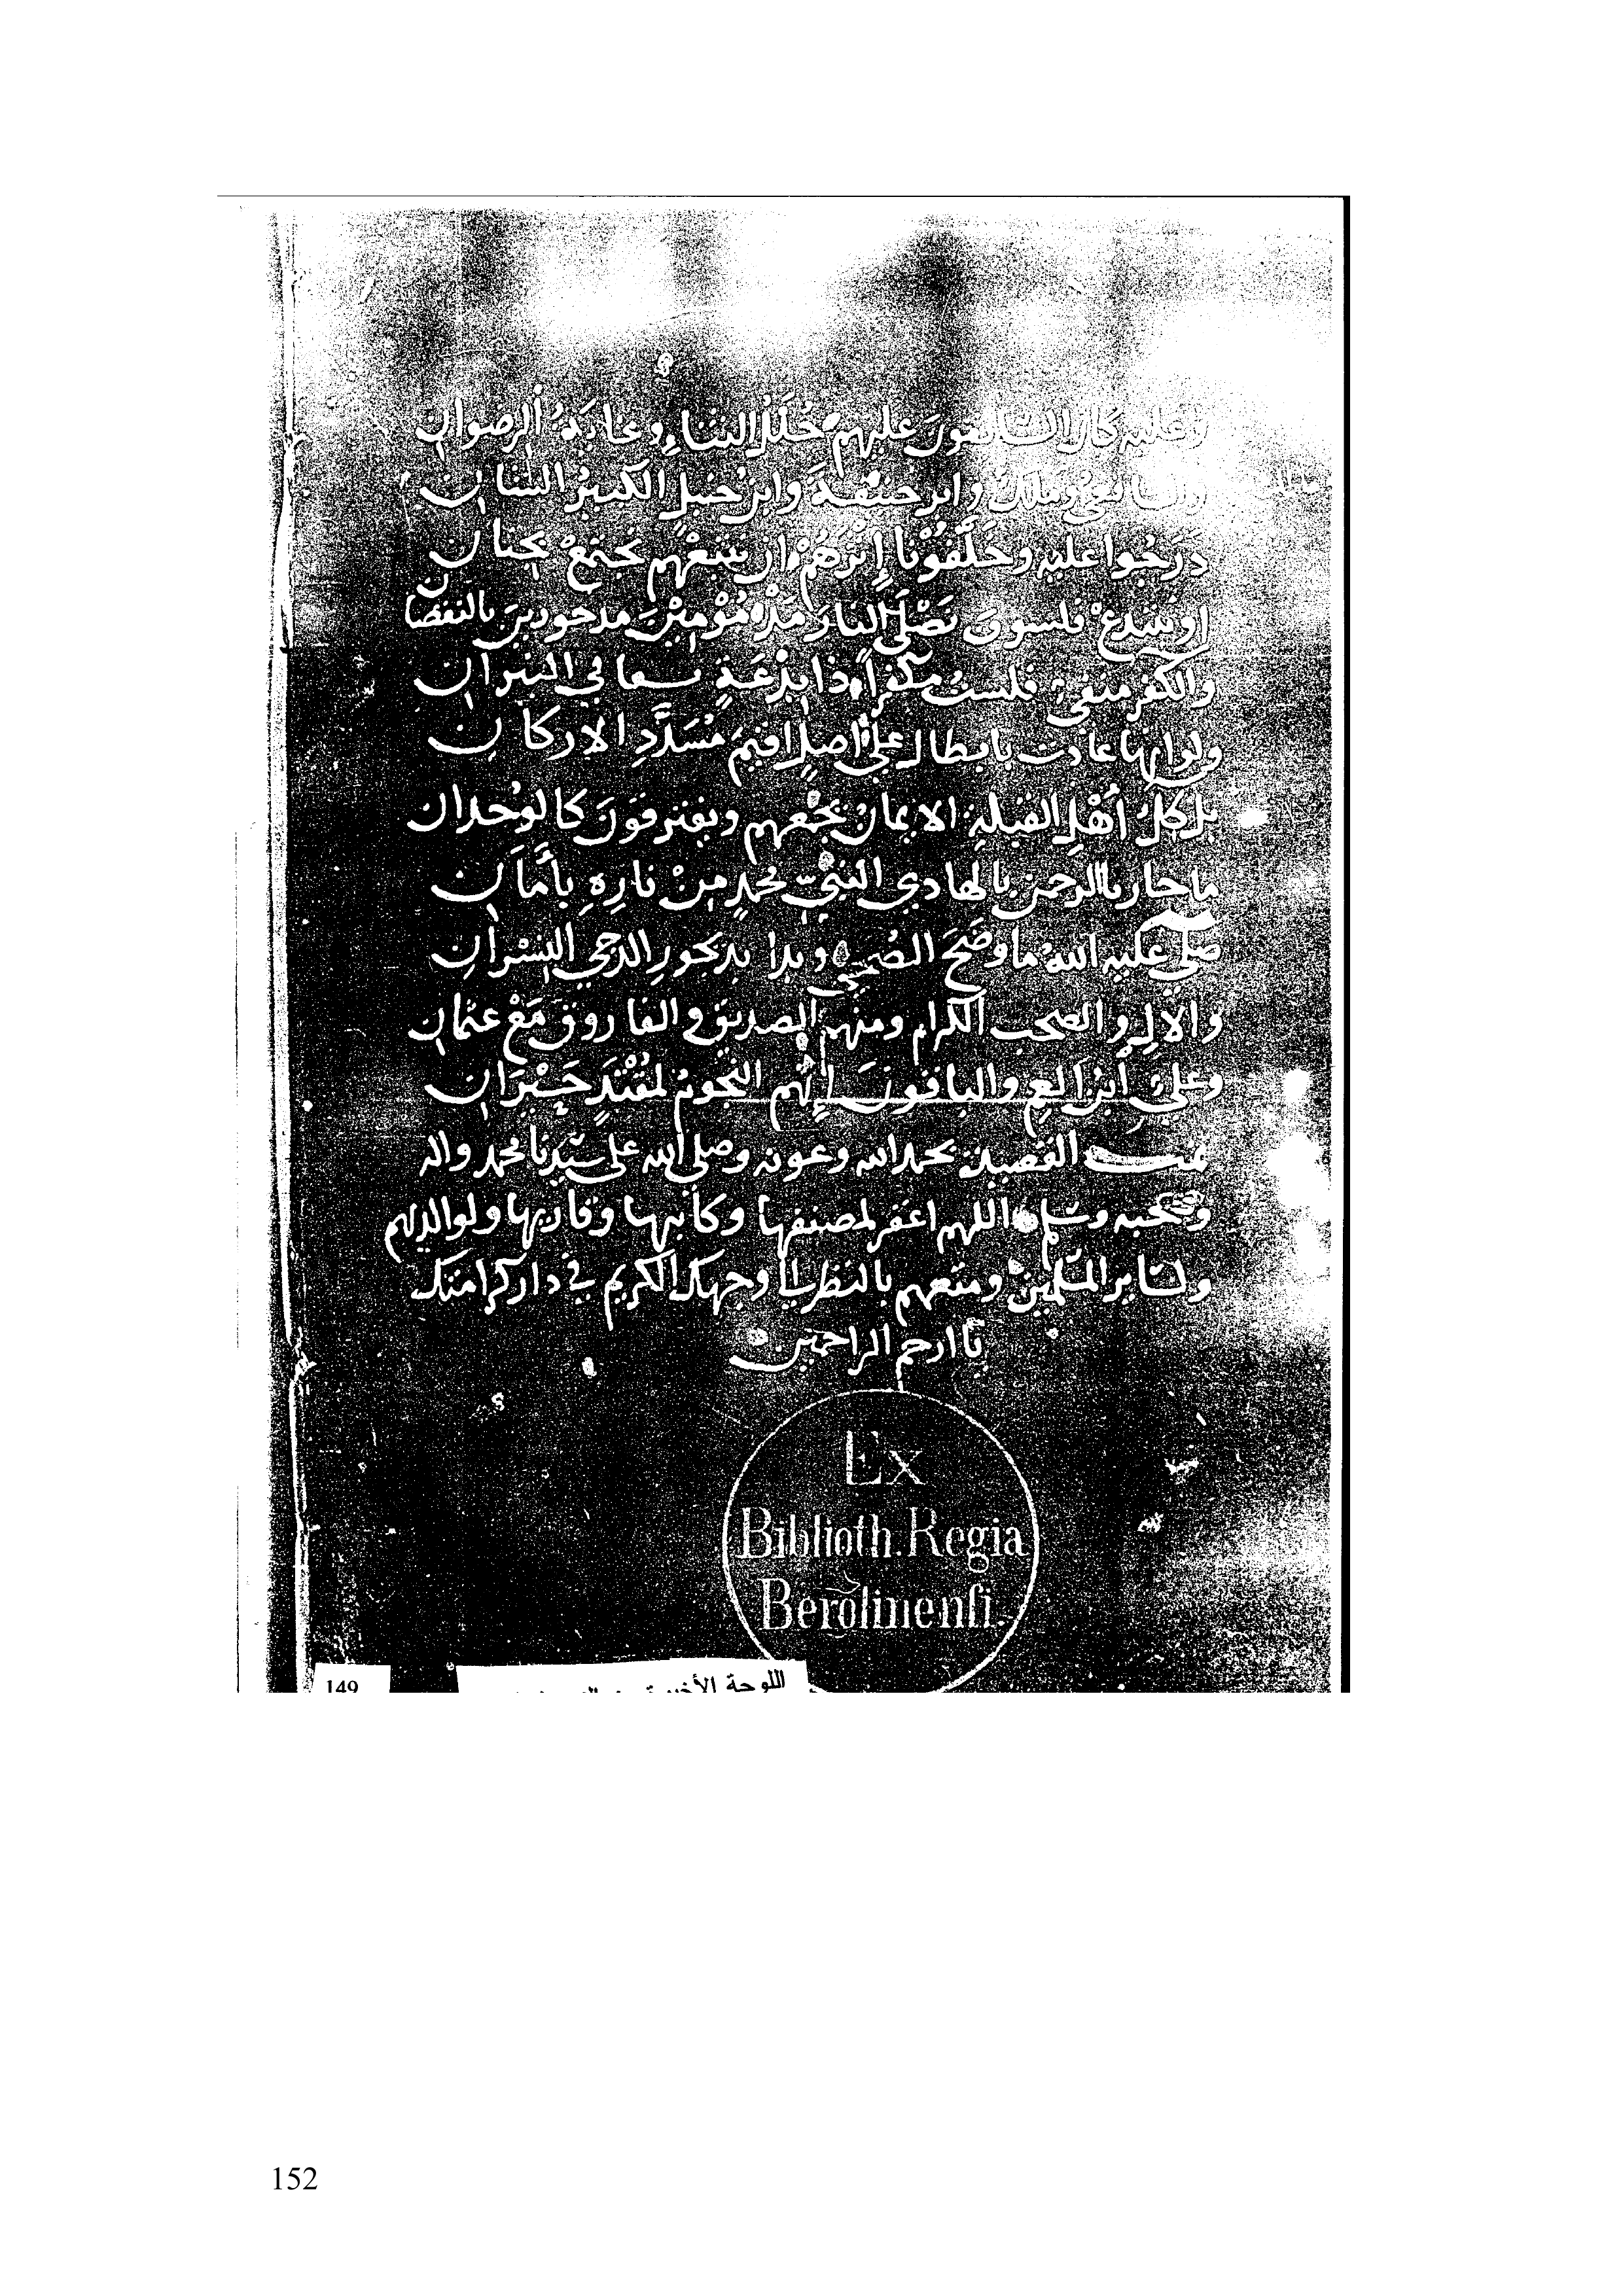 وعليه كان السابقون عليهم حُلَلُ الثناء
والشافعي ومالك وابو حنيفةَ وابنُ حنبلٍ الكبيرُ الشان
دَرَجُوا عليه وخَلَّفُوْنا إِثْرَهُمْ ان نتبعْهم نجتمعْ بجنان
او نبتدعْ فلسوف نَصْلَى النارَ مذمومينَ مدحورينَ بالعصيان
والكفر منفى فلستُ مكفراً ذا بِدْعَةٍ في النيران
الاركان
بل كل أَهْلِ القبلةِ الايمانُ يجمعهم ويفترقون كالوُحدان
بالهادي النبيّ محمدٍ مِنْ نارِهِ بأَمَان
صلى عليه اللهُ ما وضَحَ الضُحى وبدا بديجورِ الدجى النسْرانِ
والآلِ والصحب الكرام ومنهم الصديق والفاروق مَعْ عثمان
وعلىّ ابن العم والباقونَ إنهم النجومُ لمقْتَدٍ حَيْرَان
تمت القصيدة بحمد الله وعونه وصلى الله على سيدنا محمد واله
وصحبه وسلم اللهم اغفر لمصنفها وكاتبها وقاريها ولوالديهم
ولساير المسلمين ومتعهم بالنظر الى وجهك الكريم في دار كرامتك
يا ارحم الراحمين
Ex
Biblioth. Regia
Berolinenſi.
149
اللوحة الأخيرة
152